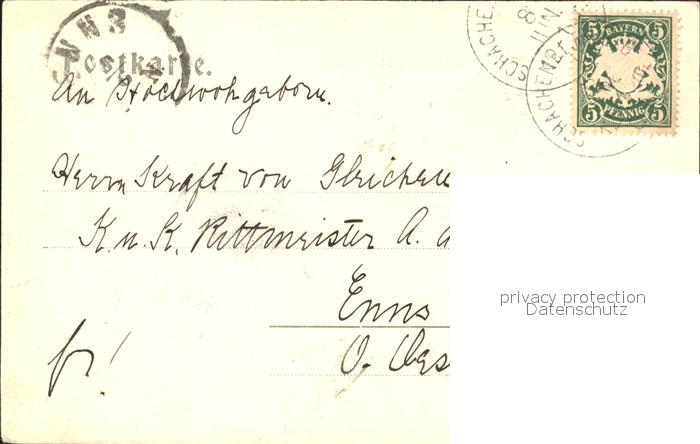 ENNS
Postkarte.
SCHACHEN
8 JUN.
SCHACHEN B/L
5 BAYERN 5
5 PFENNIG 5
An Hochwohgeborn.
Herrn Kraft von Gleichen
K. u. K. Rittmeister A. d
Enns
O. Oes
fr!
privacy protection
Datenschutz